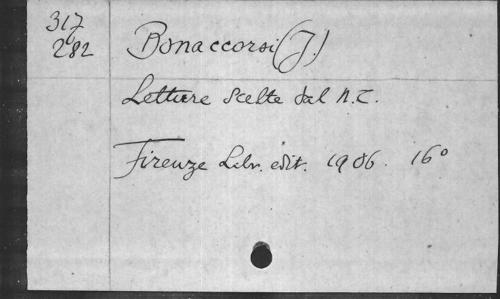 317
282
Bonaccorsi (J.)
Letture scelte dal N.T.
Firenze Libr. edit. 1906. 16°